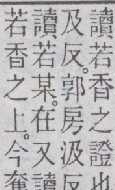 讀若香之證也
及反。郭房汲反
讀若某。在又讀
若香之上。今奪